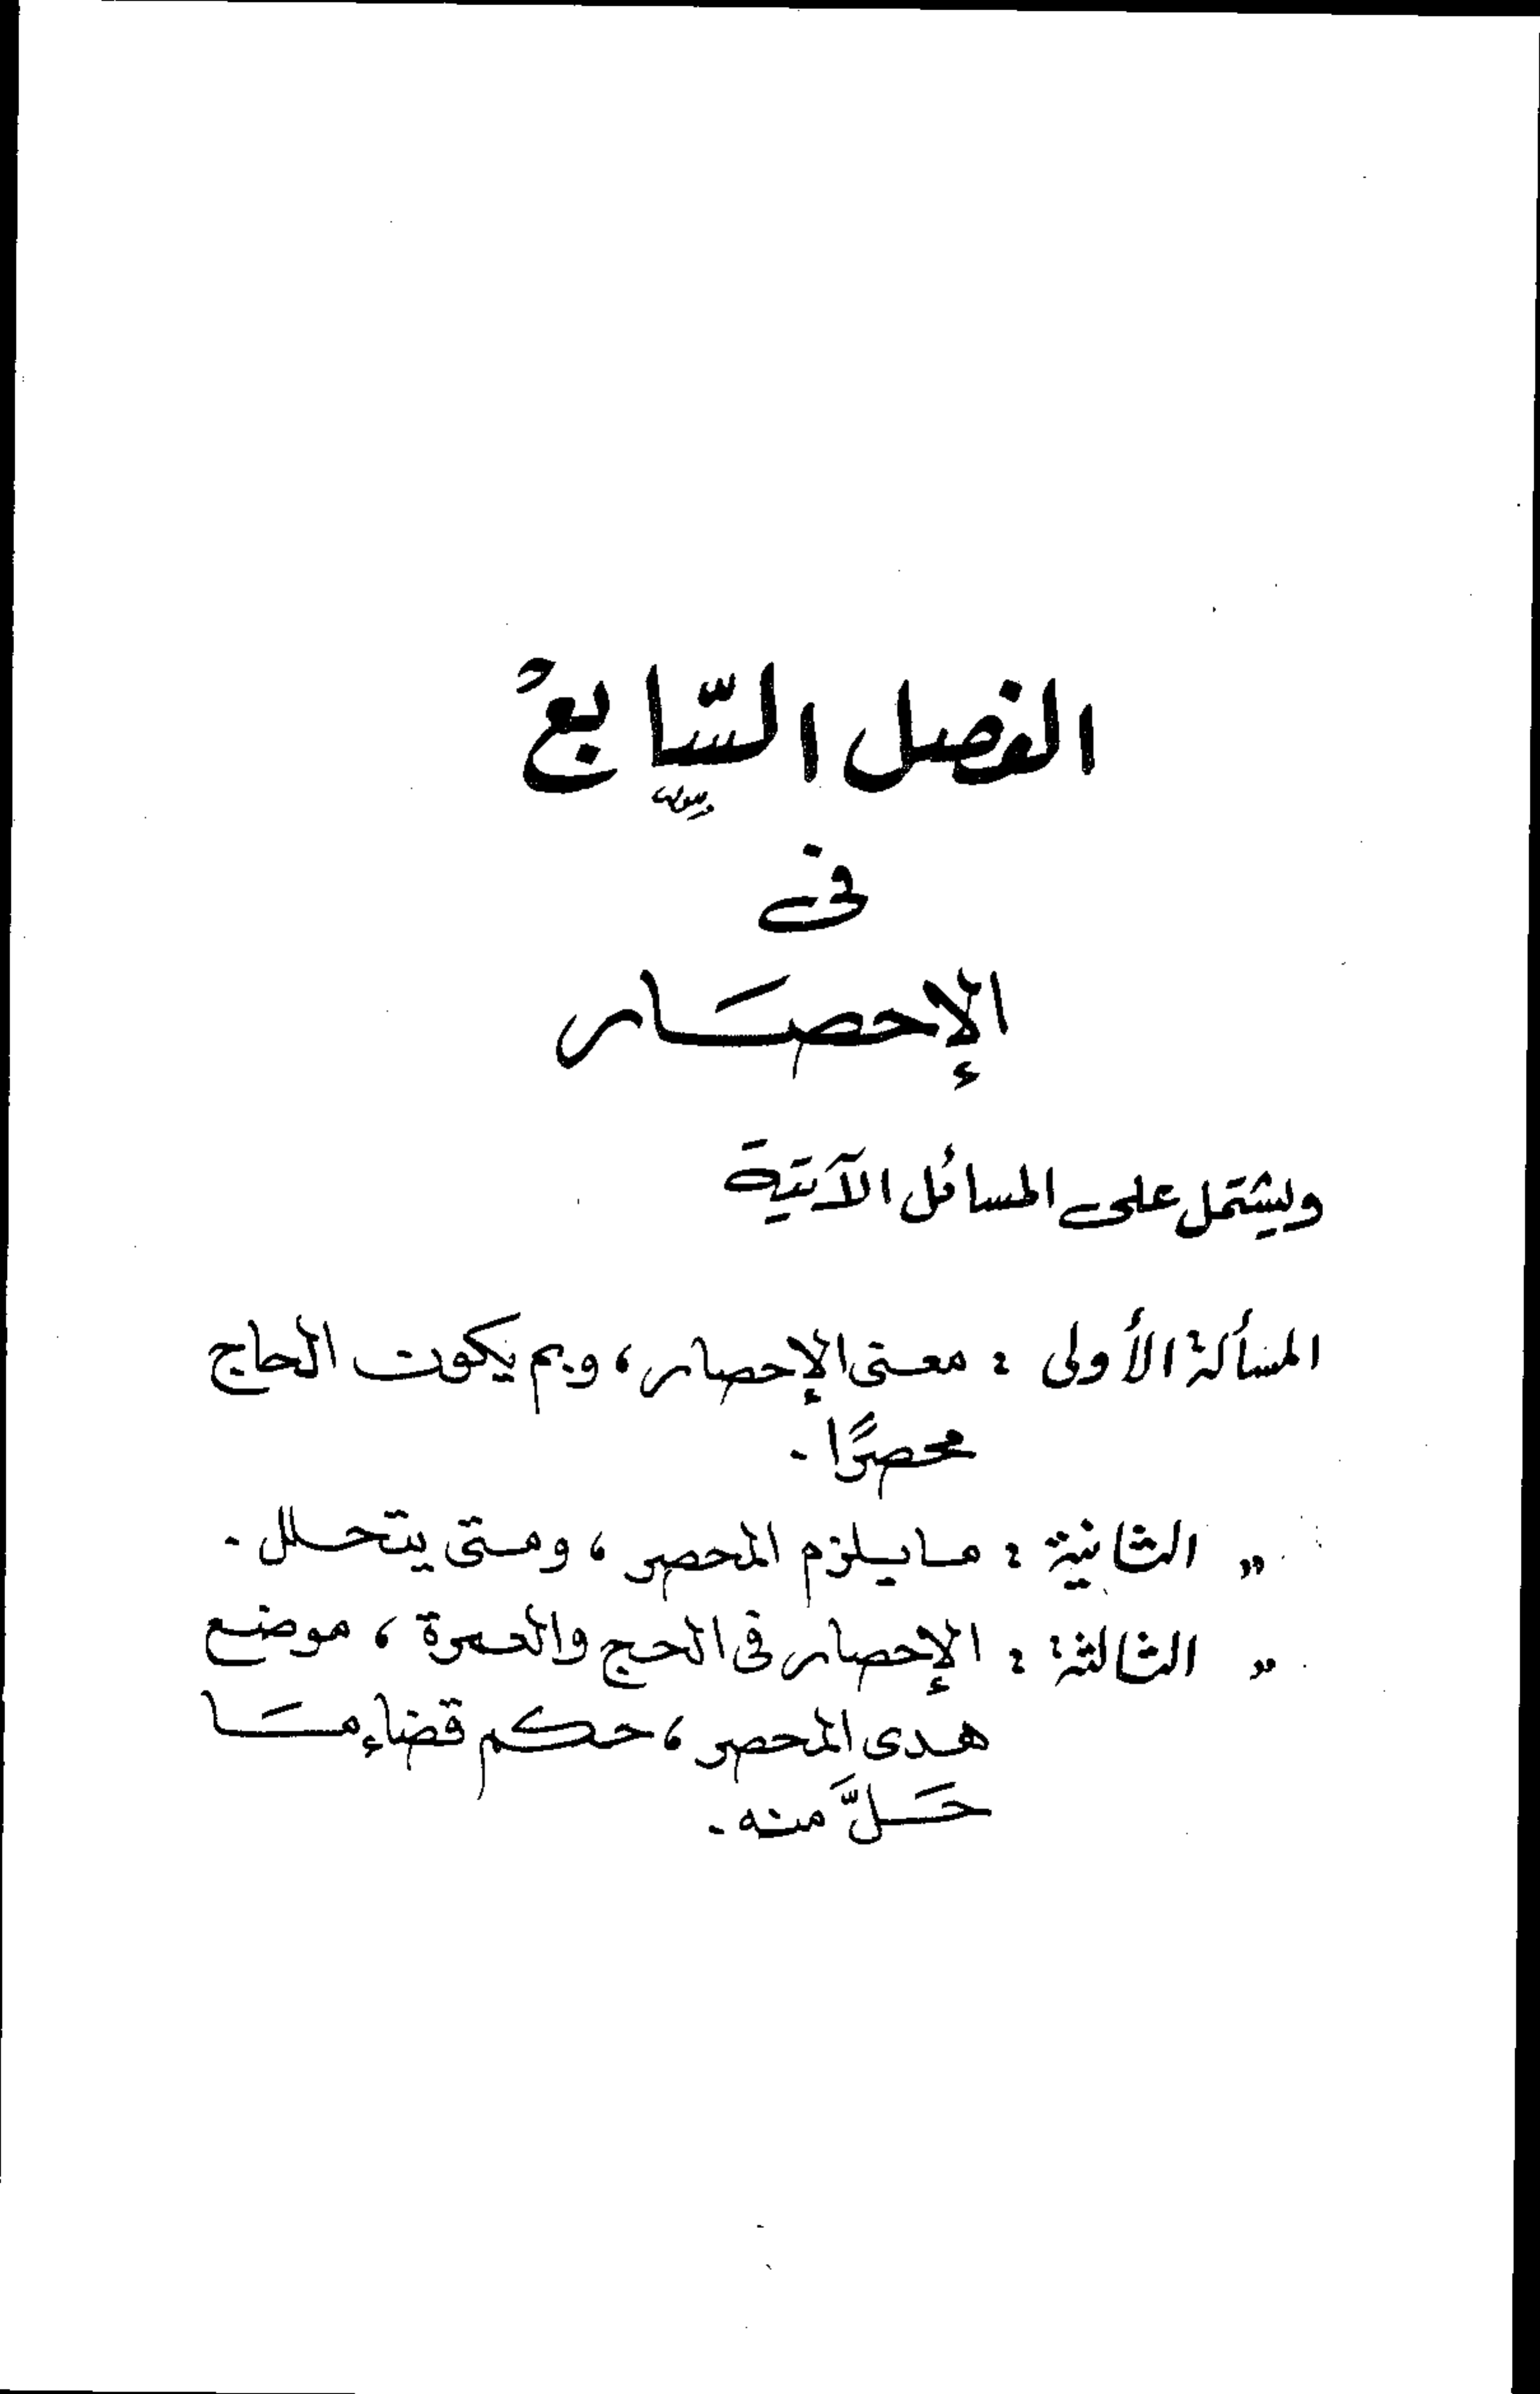 الفصل السَّابعُ
فى
الإحصَار
ويشتمل على المسائل الآتية
المسألة الأولى : معنى الإحصار، وبم يكون الحاج
محصرًا .
" الثانية : ما يلزم المحصر ، ومتى يتحلل .
" الثالثة : الإحصار فى الحج والعمرة ، موضع
هدى المحصر ، حكم قضاء مَا
حَلَّ منه .